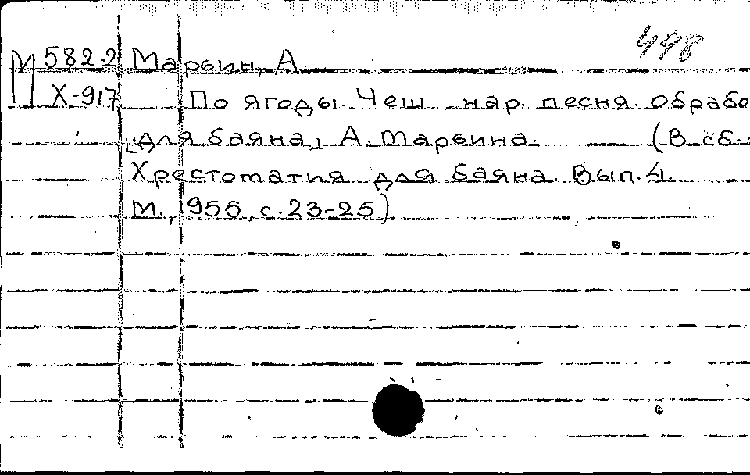 448
М 582-2 Марьин, А
Х-917 По ягоды. Чеш. нар. песня обрабо
[для баяна] А. Марьина. (В сб.
Хрестоматия для баяна. Вып. 4.
М., 1955, с. 23-25)